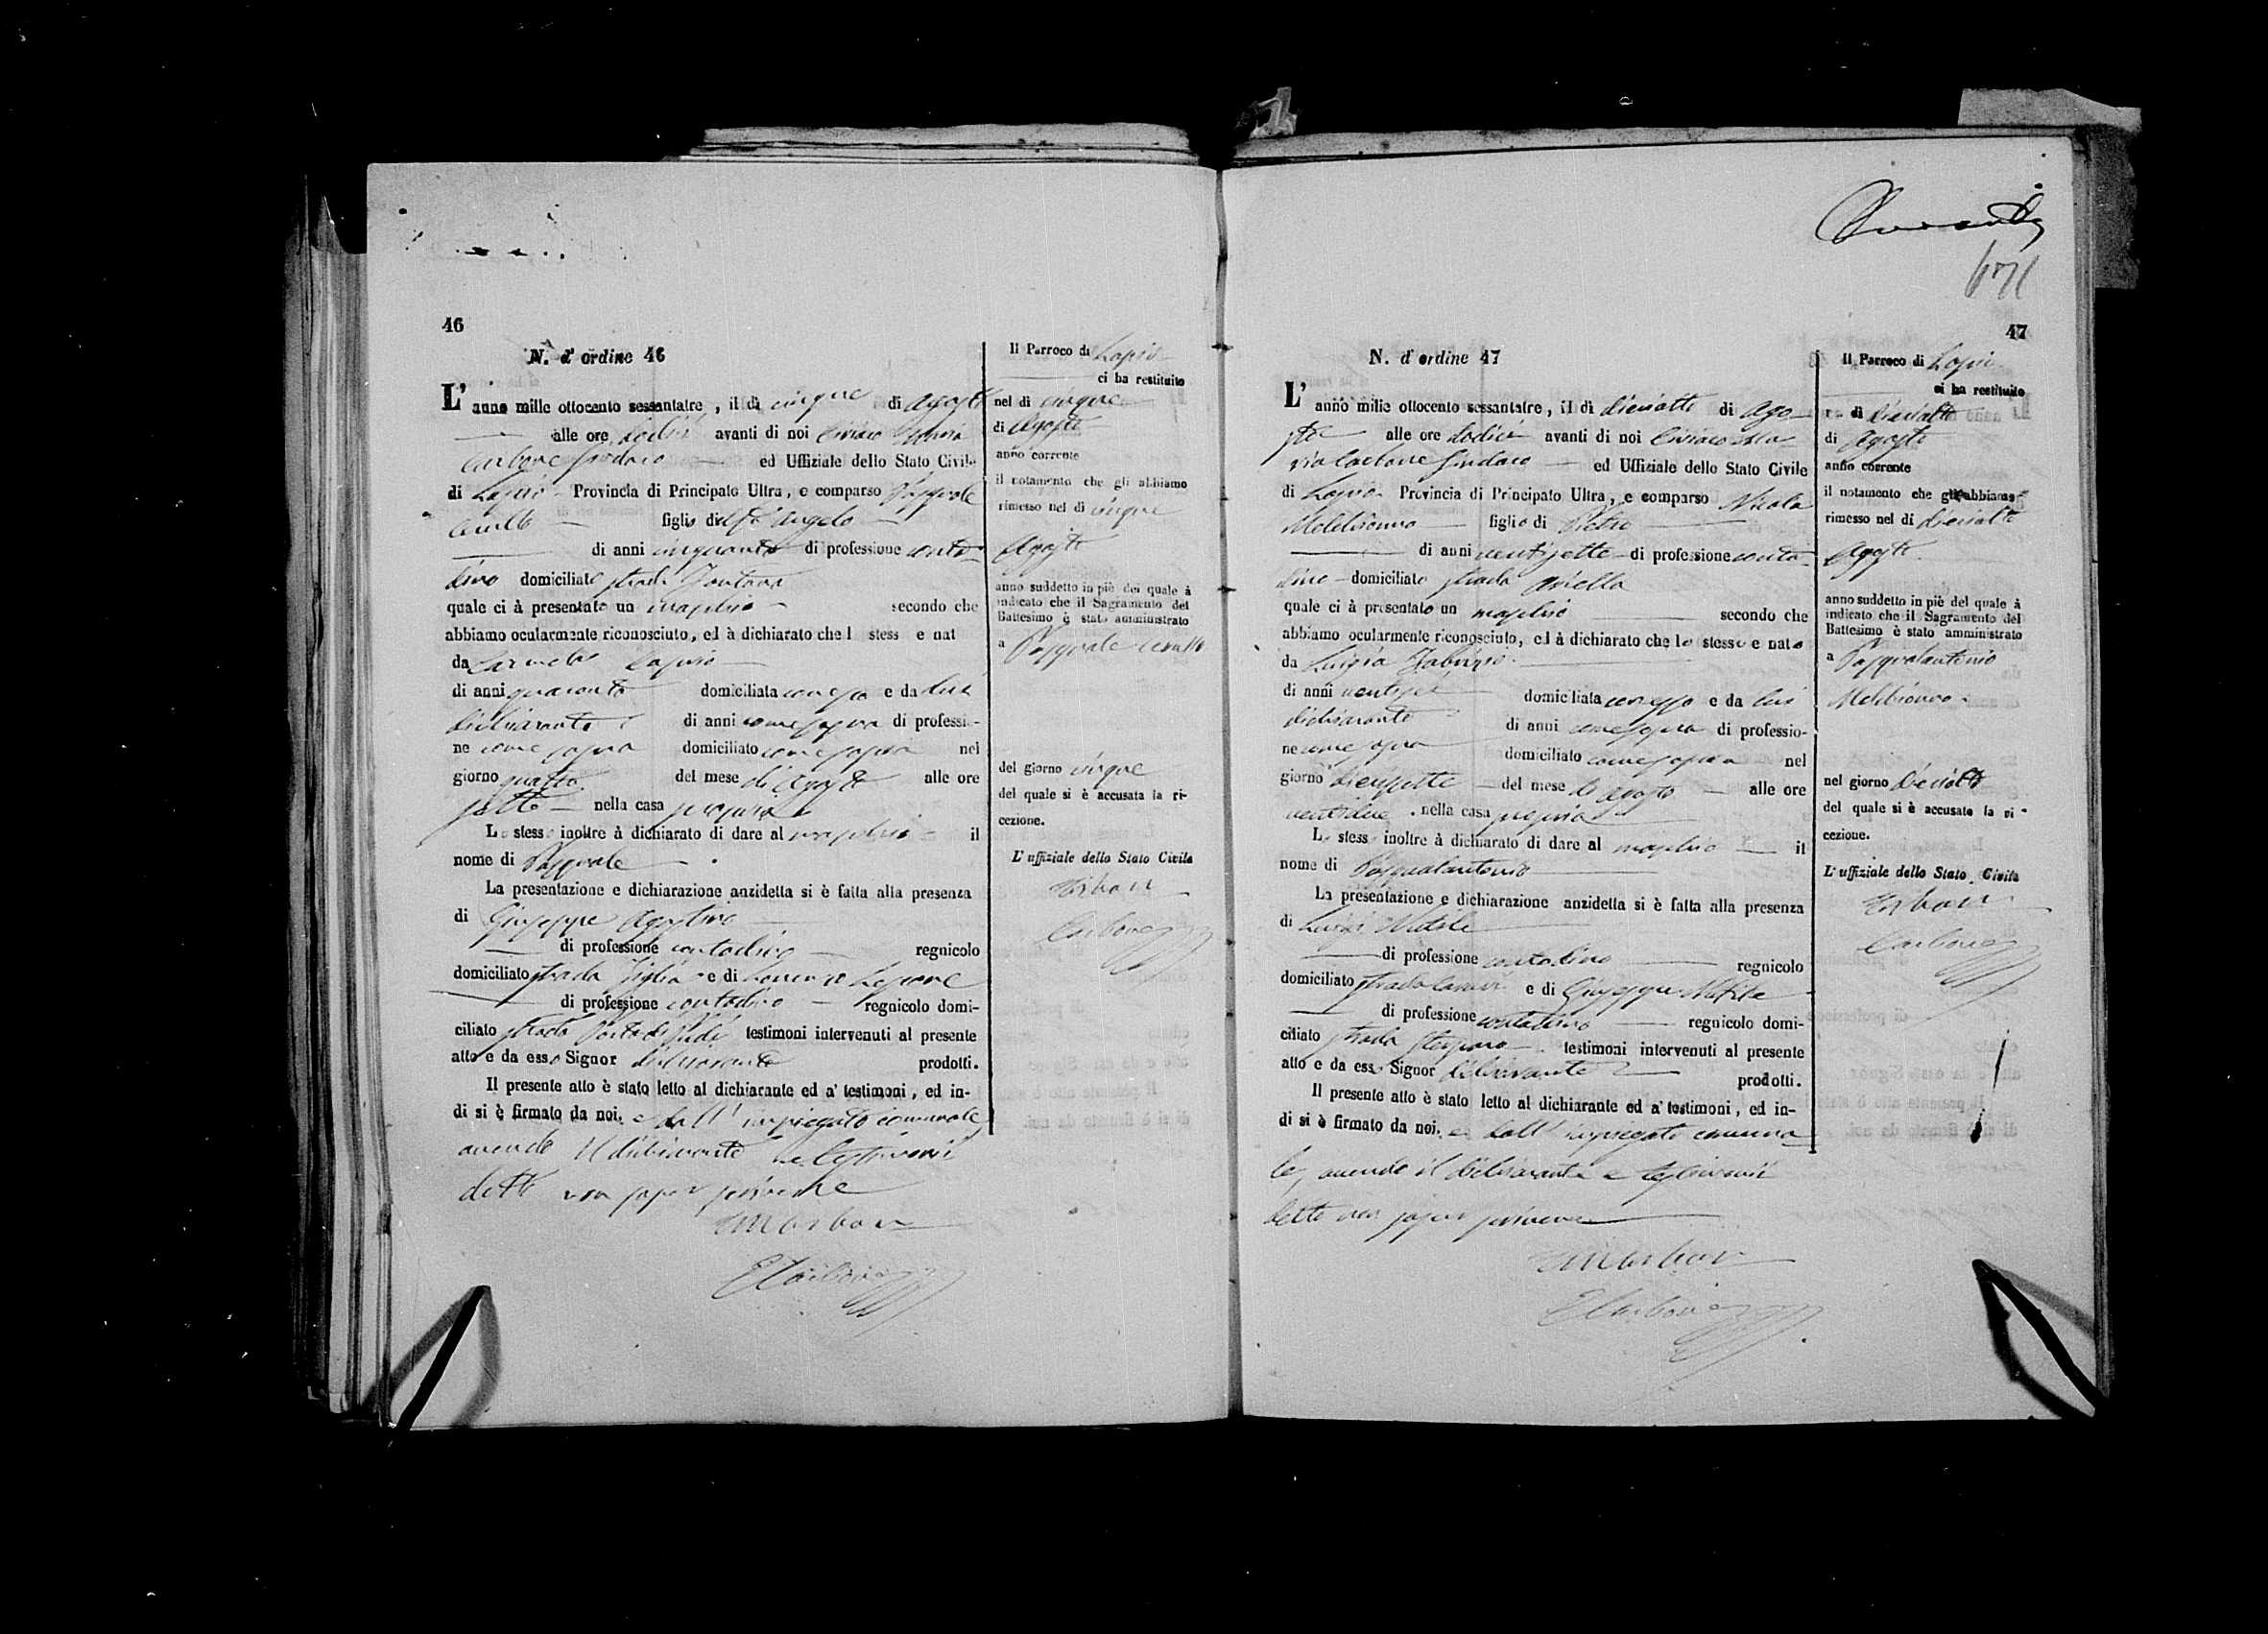 46
N. d' ordine 46
L' anno mille ottocento sessantatre, il dì cinque di Agosto
alle ore dodici avanti di noi Ciriaco Maria
Carbone Sindaco ed Uffiziale dello Stato Civile
di Lapio Provincia di Principato Ultra, e comparso Pasquale
figlio di Angelo
di anni cinquanta di professione conta-
dino domiciliato strada Fontana
quale ci à presentato un maschio secondo che
abbiamo ocularmente riconosciuto, ed à dichiarato che l stess e nat
da Carmela
di anni quaranta domiciliata con esso e da lui
dichiarante di anni come sopra di professio-
ne come sopra domiciliato come sopra nel
giorno quattro del mese di Agosto alle ore
sette nella casa propria
Lo stesso inoltre à dichiarato di dare al maschio il
nome di Pasquale
La presentazione e dichiarazione anzidetta si è fatta alla presenza
di Giuseppe Agostino
di professione contadino regnicolo
domiciliato strada e di Lorenzo Lepore
di professione contadino regnicolo domi-
ciliato strada testimoni intervenuti al presente
atto e da esso Signor dichiarante prodotti.
Il presente atto è stato letto al dichiarante ed a' testimoni, ed in-
di si è firmato da noi, e dall' impiegato comunale
avendo il dichiarante e testimonii
detto non saper scrivere
Carbone
Il Parroco di Lapio
ci ha restituito
nel dì cinque
di Agosto
anno corrente
il notamento che gli abbiamo
rimesso nel dì cinque
Agosto
anno suddetto in piè del quale à
indicato che il Sagramento del
Battesimo è stato amministrato
a Pasquale
del giorno cinque
del quale si è accusata la ri-
cezione.
L' uffiziale dello Stato Civile
Carbone
47
N. d' ordine 47
L' anno mille ottocento sessantatre, il dì dieciotto di Ago-
sto alle ore dodici avanti di noi Ciriaco Ma-
ria Carbone Sindaco ed Uffiziale dello Stato Civile
di Lapio Provincia di Principato Ultra, e comparso Nicola
figlio di Pietro
di anni ventisette di professione conta-
dino domiciliato strada Ariella
quale ci à presentato un maschio secondo che
abbiamo ocularmente riconosciuto, ed à dichiarato che lo stesso e nato
da Luigia Fabrizio
di anni ventisei domiciliata con esso e da lui
dichiarante di anni come sopra di professio-
ne come sopra domiciliato come sopra nel
giorno diecisette del mese di Agosto alle ore
ventidue nella casa propria
Lo stess inoltre à dichiarato di dare al maschio il
nome di Pasqualantonio
La presentazione e dichiarazione anzidetta si è fatta alla presenza
di Luigi
di professione contadino regnicolo
domiciliato strada e di Giuseppe
di professione contadino regnicolo domi-
ciliato strada testimoni intervenuti al presente
atto e da ess Signor dichiarante prodotti.
Il presente atto è stato letto al dichiarante ed a' testimoni, ed in-
di si è firmato da noi, e dall' impiegato comuna-
le, avendo il dichiarante e testimonii
detto non saper scrivere
Carbone
Il Parroco di Lapio
ci ha restituito
dì dieciotto
di Agosto
anno corrente
il notamento che gli abbiamo
rimesso nel dì dieciotto
Agosto
anno suddetto in piè del quale à
indicato che il Sagramento del
Battesimo è stato amministrato
a Pasqualantonio
nel giorno dieciotto
del quale si è accusata la ri-
cezione.
L' uffiziale dello Stato Civile
Carbone